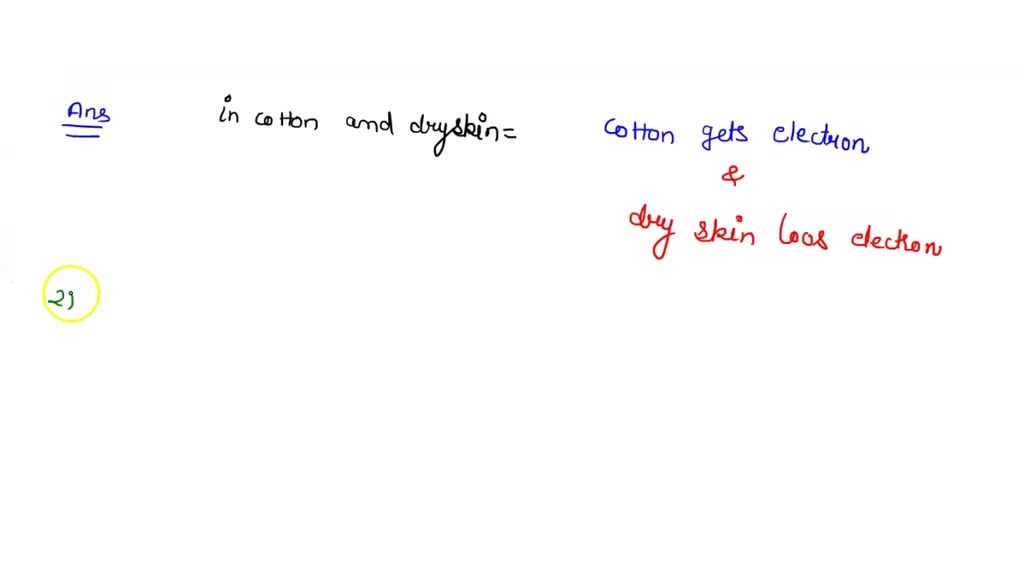 Ans in cotton and dryskin= cotton gets electron
&
dry skin loos electron
2)